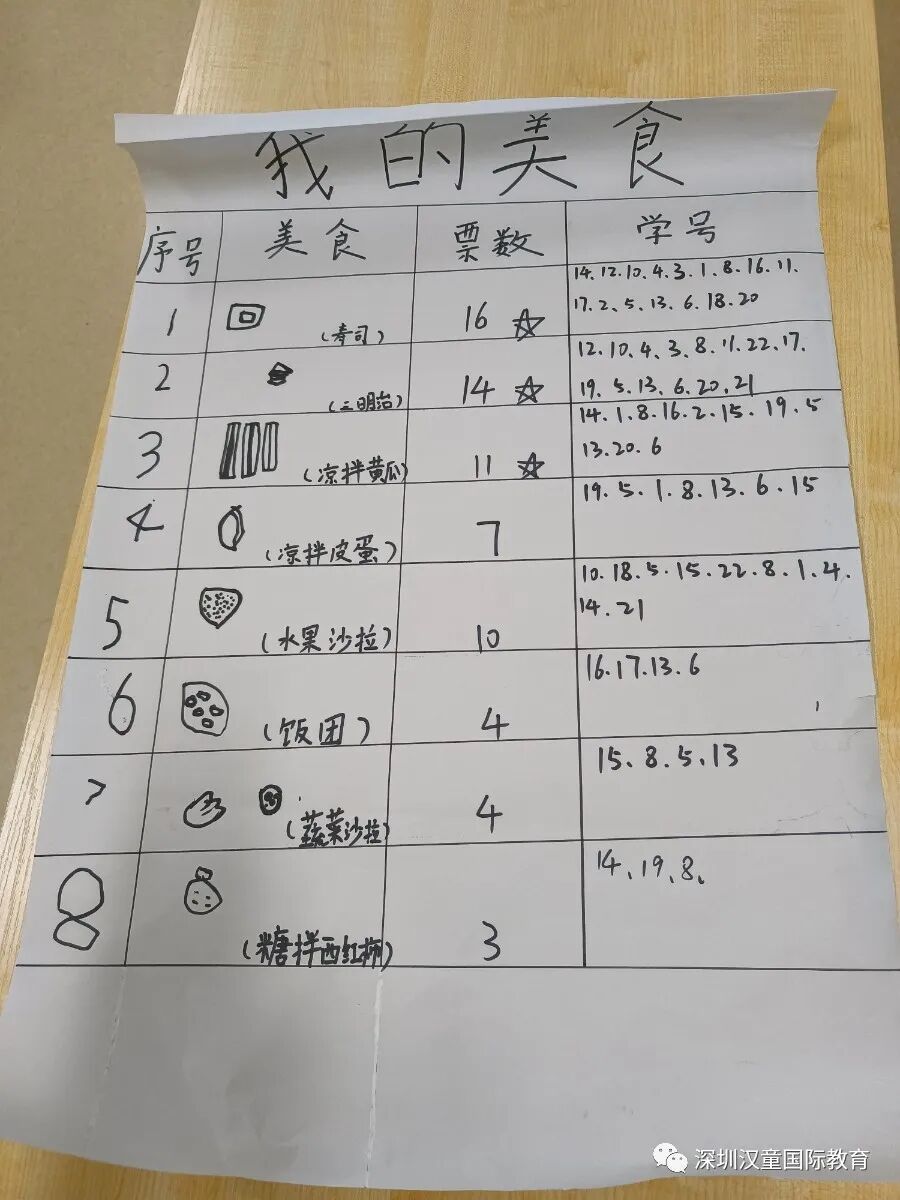 我的美食
序号 美食 票数 学号
1 (寿司) 16 14.12.10.4.3.1.8.16.11.
17.2、5.13.6.18.20
2 (三明治) 14 12.10.4、3、8、11.22.17.
19.5.13、6.20、21
3 (凉拌黄瓜) 11 14.1.8.16.2.15.19.5
13.20.6
4 (凉拌皮蛋) 7 19.5.1.8.13.6.15
5 (水果沙拉) 10 10.18.5.15.22.8.1.4.
14.21
6 (饭团) 4 16.17.13.6
7 (蔬菜沙拉) 4 15、8、5、13
8 (糖拌西红柿) 3 14、19、8、
深圳汉童国际教育